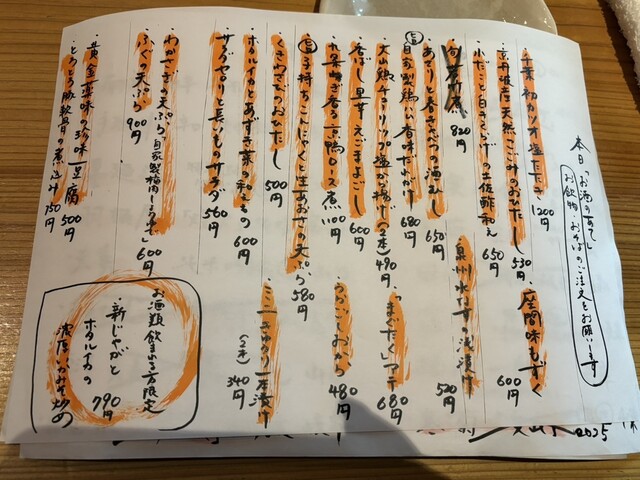 本日「お酒のあて」
お飲物、おそばのご注文をお願います
千葉 初カツオ塩たたき 1200円
京丹波産天然こごみのおひたし 530円
小だこと白きくらげの土佐酢和え 650円
旬 若竹煮 820円
あさりと春きゃべつの酒むし 650円
自家製鶏ハム香味だれがけ 680円
大山鶏チューリップ塩から揚げ(2本) 490円
香ばし芽 えごまよごし 600円
九条ねぎ香る 京鴨ロース煮 1100円
子持ちこんにゃくと生あおさの天ぷら 580円
くきわさびのおひたし 500円
ホルイカとあずき菜の和えもの 600円
サラダセロリと長いものサラダ 560円
わかさぎの天ぷら「自家製梅肉しょうゆ」 600円
ふぐ天ぷら 900円
黄金薬味入り 豆腐 500円
とろとろ豚軟骨の煮込み 750円
座間味もずく 600円
泉州水なすの浅漬け 520円
「まぐたく」アテ 680円
うらごしおから 480円
ミニきゅうり一本漬け (2本) 340円
お酒類飲まれる方限定
新じゃがと
ホタルイカの
濃厚いかみそ炒め 790円
2025